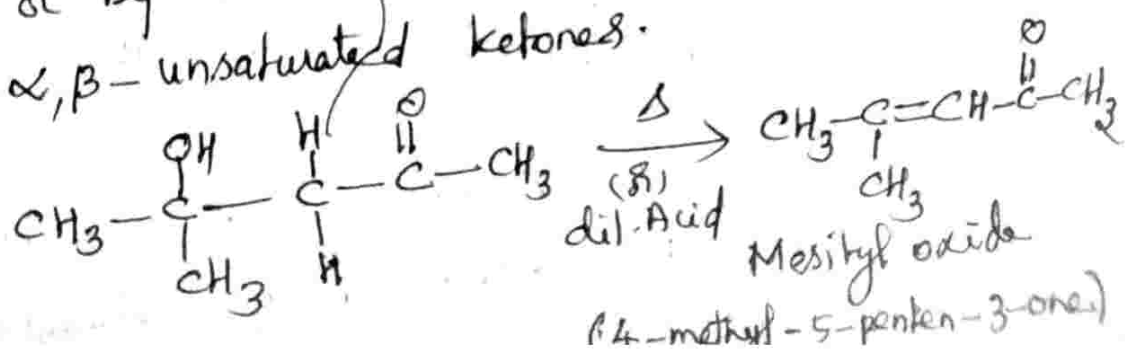 α,β - unsaturated ketones.
CH3-C(OH)(CH3)-C(H)(H)-C(=O)-CH3 →[Δ (or) dil. Acid] CH3-C(CH3)=CH-C(=O)-CH3
Mesityl oxide
(4-methyl-5-penten-3-one)